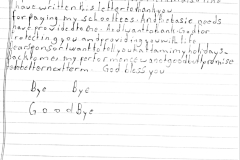 I have written this letter to thank you
for paying my school fees. And Ebtasie goods
have provided to me. And I want to thank God for
protecting you and providing you with life
I want to tell you that am in my holidays
back home my performance was not good but I promise
a better next term. God bless you
Bye Bye
Good Bye